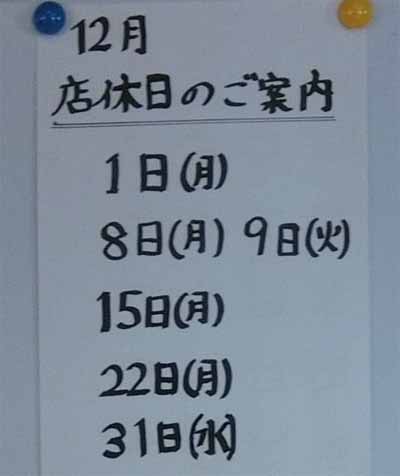 12月
店休日のご案内
1日(月)
8日(月) 9日(火)
15日(月)
22日(月)
31日(水)